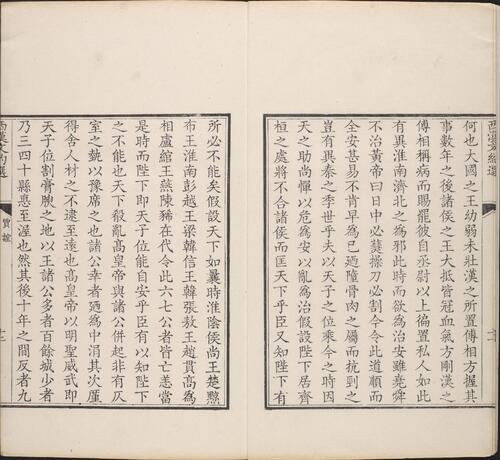 何也大國之王幼弱未壯漢之所置傅相方握其
事數年之後諸侯之王大抵皆冠血氣方剛漢之
傅相稱病而賜罷彼自丞尉以上徧置私人如此
有異淮南濟北之為邪此時而欲為治安雖堯舜
不治黃帝曰日中必㷋操刀必割今令此道順而
全安甚易不肯早為已迺墮骨肉之屬而抗剄之
豈有異秦之季世乎夫以天子之位乘今之時因
天之助尚憚以危為安以亂為治假設陛下居齊
桓之處將不合諸侯而匡天下乎臣又知陛下有
所必不能矣假設天下如曩時淮陰侯尚王楚黥
布王淮南彭越王梁韓信王韓張敖王趙貫高為
相盧綰王燕陳豨在代令此六七公者皆亡恙當
是時而陛下即天子位能自安乎臣有以知陛下
之不能也天下殽亂高皇帝與諸公併起非有仄
室之埶以豫席之也諸公幸者迺為中涓其次廑
得舍人材之不逮至遠也高皇帝以明聖威武即
天子位割膏腴之地以王諸公多者百餘城少者
乃三四十縣悳至渥也然其後十年之間反者九
西漢文約選
賈誼